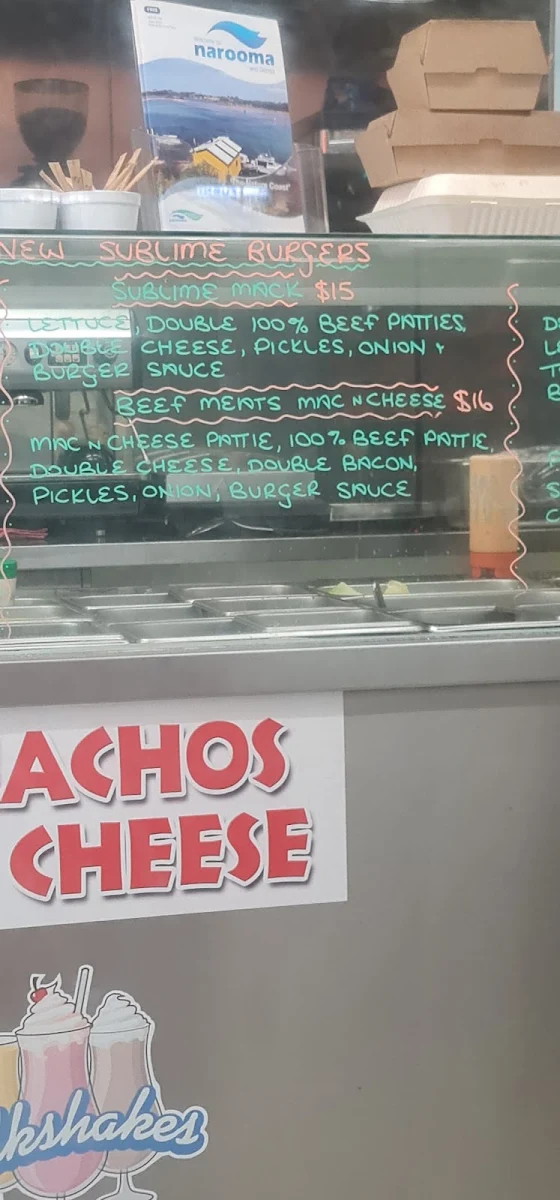 FREE
narooma
NEW SUBLIME BURGERS
SUBLIME MACK $15
LETTUCE, DOUBLE 100% BEEF PATTIES,
DOUBLE CHEESE, PICKLES, ONION +
BURGER SAUCE
BEEF MEATS MAC N CHEESE $16
MAC N CHEESE PATTIE, 100% BEEF PATTIE,
DOUBLE CHEESE, DOUBLE BACON,
PICKLES, ONION, BURGER SAUCE
ACHOS
CHEESE
kshakes